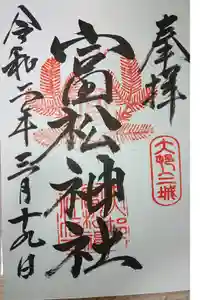 奉拝
大邨三城
富松神社
令和二年三月十九日